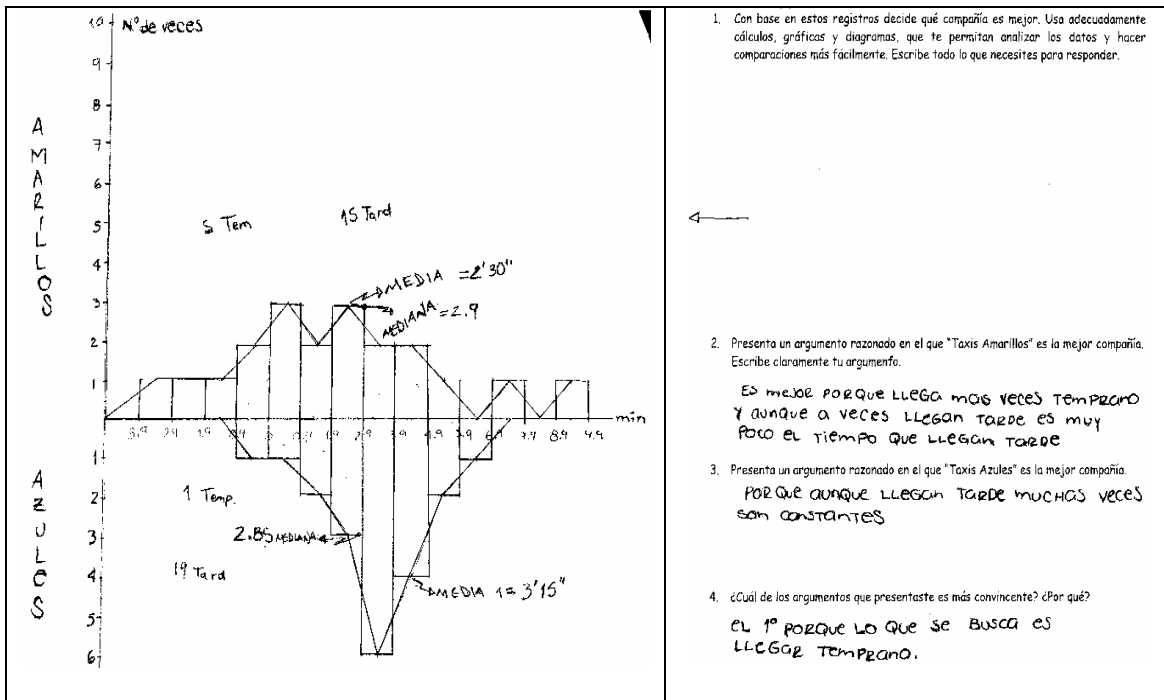 10 Nº de veces
9
8
7
6
5
4
3
2
1
AMARILLOS
5 Tem
15 Tard
MEDIA = 2'30"
MEDIANA = 2.9
min
3.9 2.9 1.9 2.9 3.9 4.9 6.9 7.9 8.9 9.9
1
2
3
4
5
6
AZULES
1 Temp.
2.85 MEDIANA
19 Tard
MEDIA 1= 3'15"
1. Con base en estos registros decide qué compañía es mejor. Usa adecuadamente
cálculos, gráficas y diagramas, que te permitan analizar los datos y hacer
comparaciones más fácilmente. Escribe todo lo que necesites para responder.
2. Presenta un argumento razonado en el que "Taxis Amarillos" es la mejor compañía.
Escribe claramente tu argumento.
ES mejor PORQUE LLEGA mas VECES TEMPRANO
Y aunque a veces LLEGAN TARDE ES MUY
POCO EL TIEMPO QUE LLEGAN TARDE
3. Presenta un argumento razonado en el que "Taxis Azules" es la mejor compañía.
PORQUE aunque LLEGan TARDE MUCHAS VECES
son CONSTANTES
4. ¿Cuál de los argumentos que presentaste es más convincente? ¿Por qué?
EL 1º PORQUE LO QUE SE BUSCA ES
LLEGAR TEMPRANO.